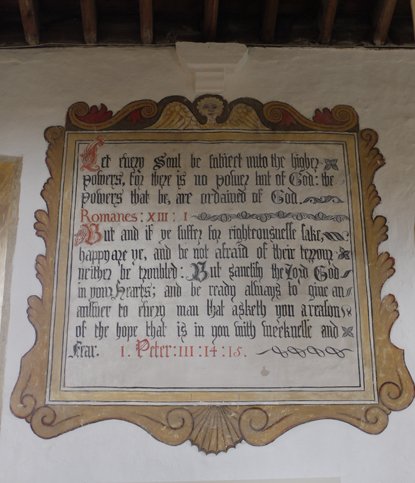 Let every Soul be subiect unto the higher
powers, for there is no power but of God: the
powers that be, are ordained of God.
Romanes: XIII: 1
But and if ye suffer for righteousnesse sake,
happy are ye, and be not afraid of their terrour
neither be troubled: But sanctify the Lord God
in your Hearts; and be ready always to give an
answer to every man that asketh you a reason
of the hope that is in you with meeknesse and
Fear. 1. Peter: III: 14: 15.